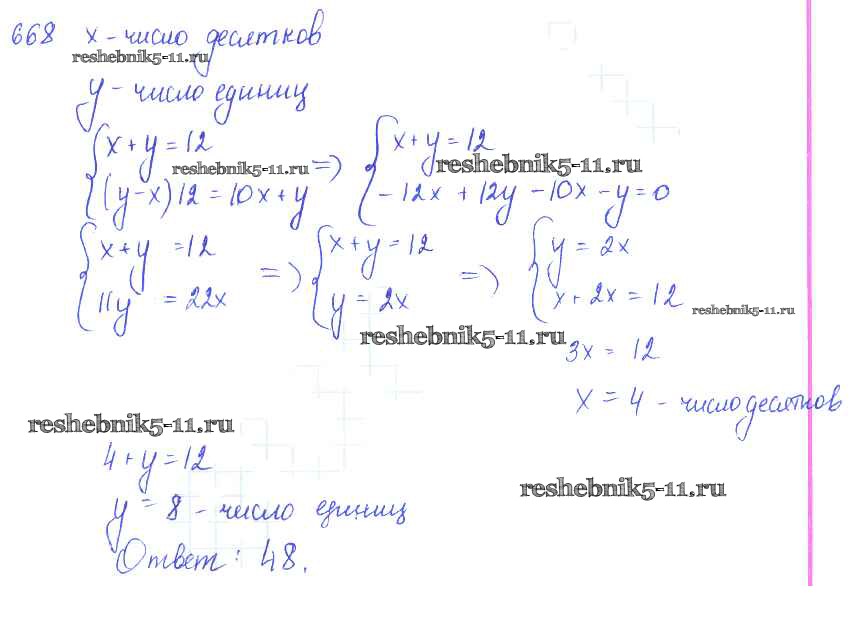 668 x - число десятков
reshebnik5-11.ru
y - число единиц
{ x + y = 12
(y - x) 12 = 10x + y
reshebnik5-11.ru
=>
{ x + y = 12
- 12x + 12y - 10x - y = 0
reshebnik5-11.ru
{ x + y = 12
11y = 22x
=>
{ x + y = 12
y = 2x
=>
{ y = 2x
x + 2x = 12
reshebnik5-11.ru
reshebnik5-11.ru
3x = 12
x = 4 - число десятков
reshebnik5-11.ru
4 + y = 12
reshebnik5-11.ru
y = 8 - число единиц
Ответ: 48.